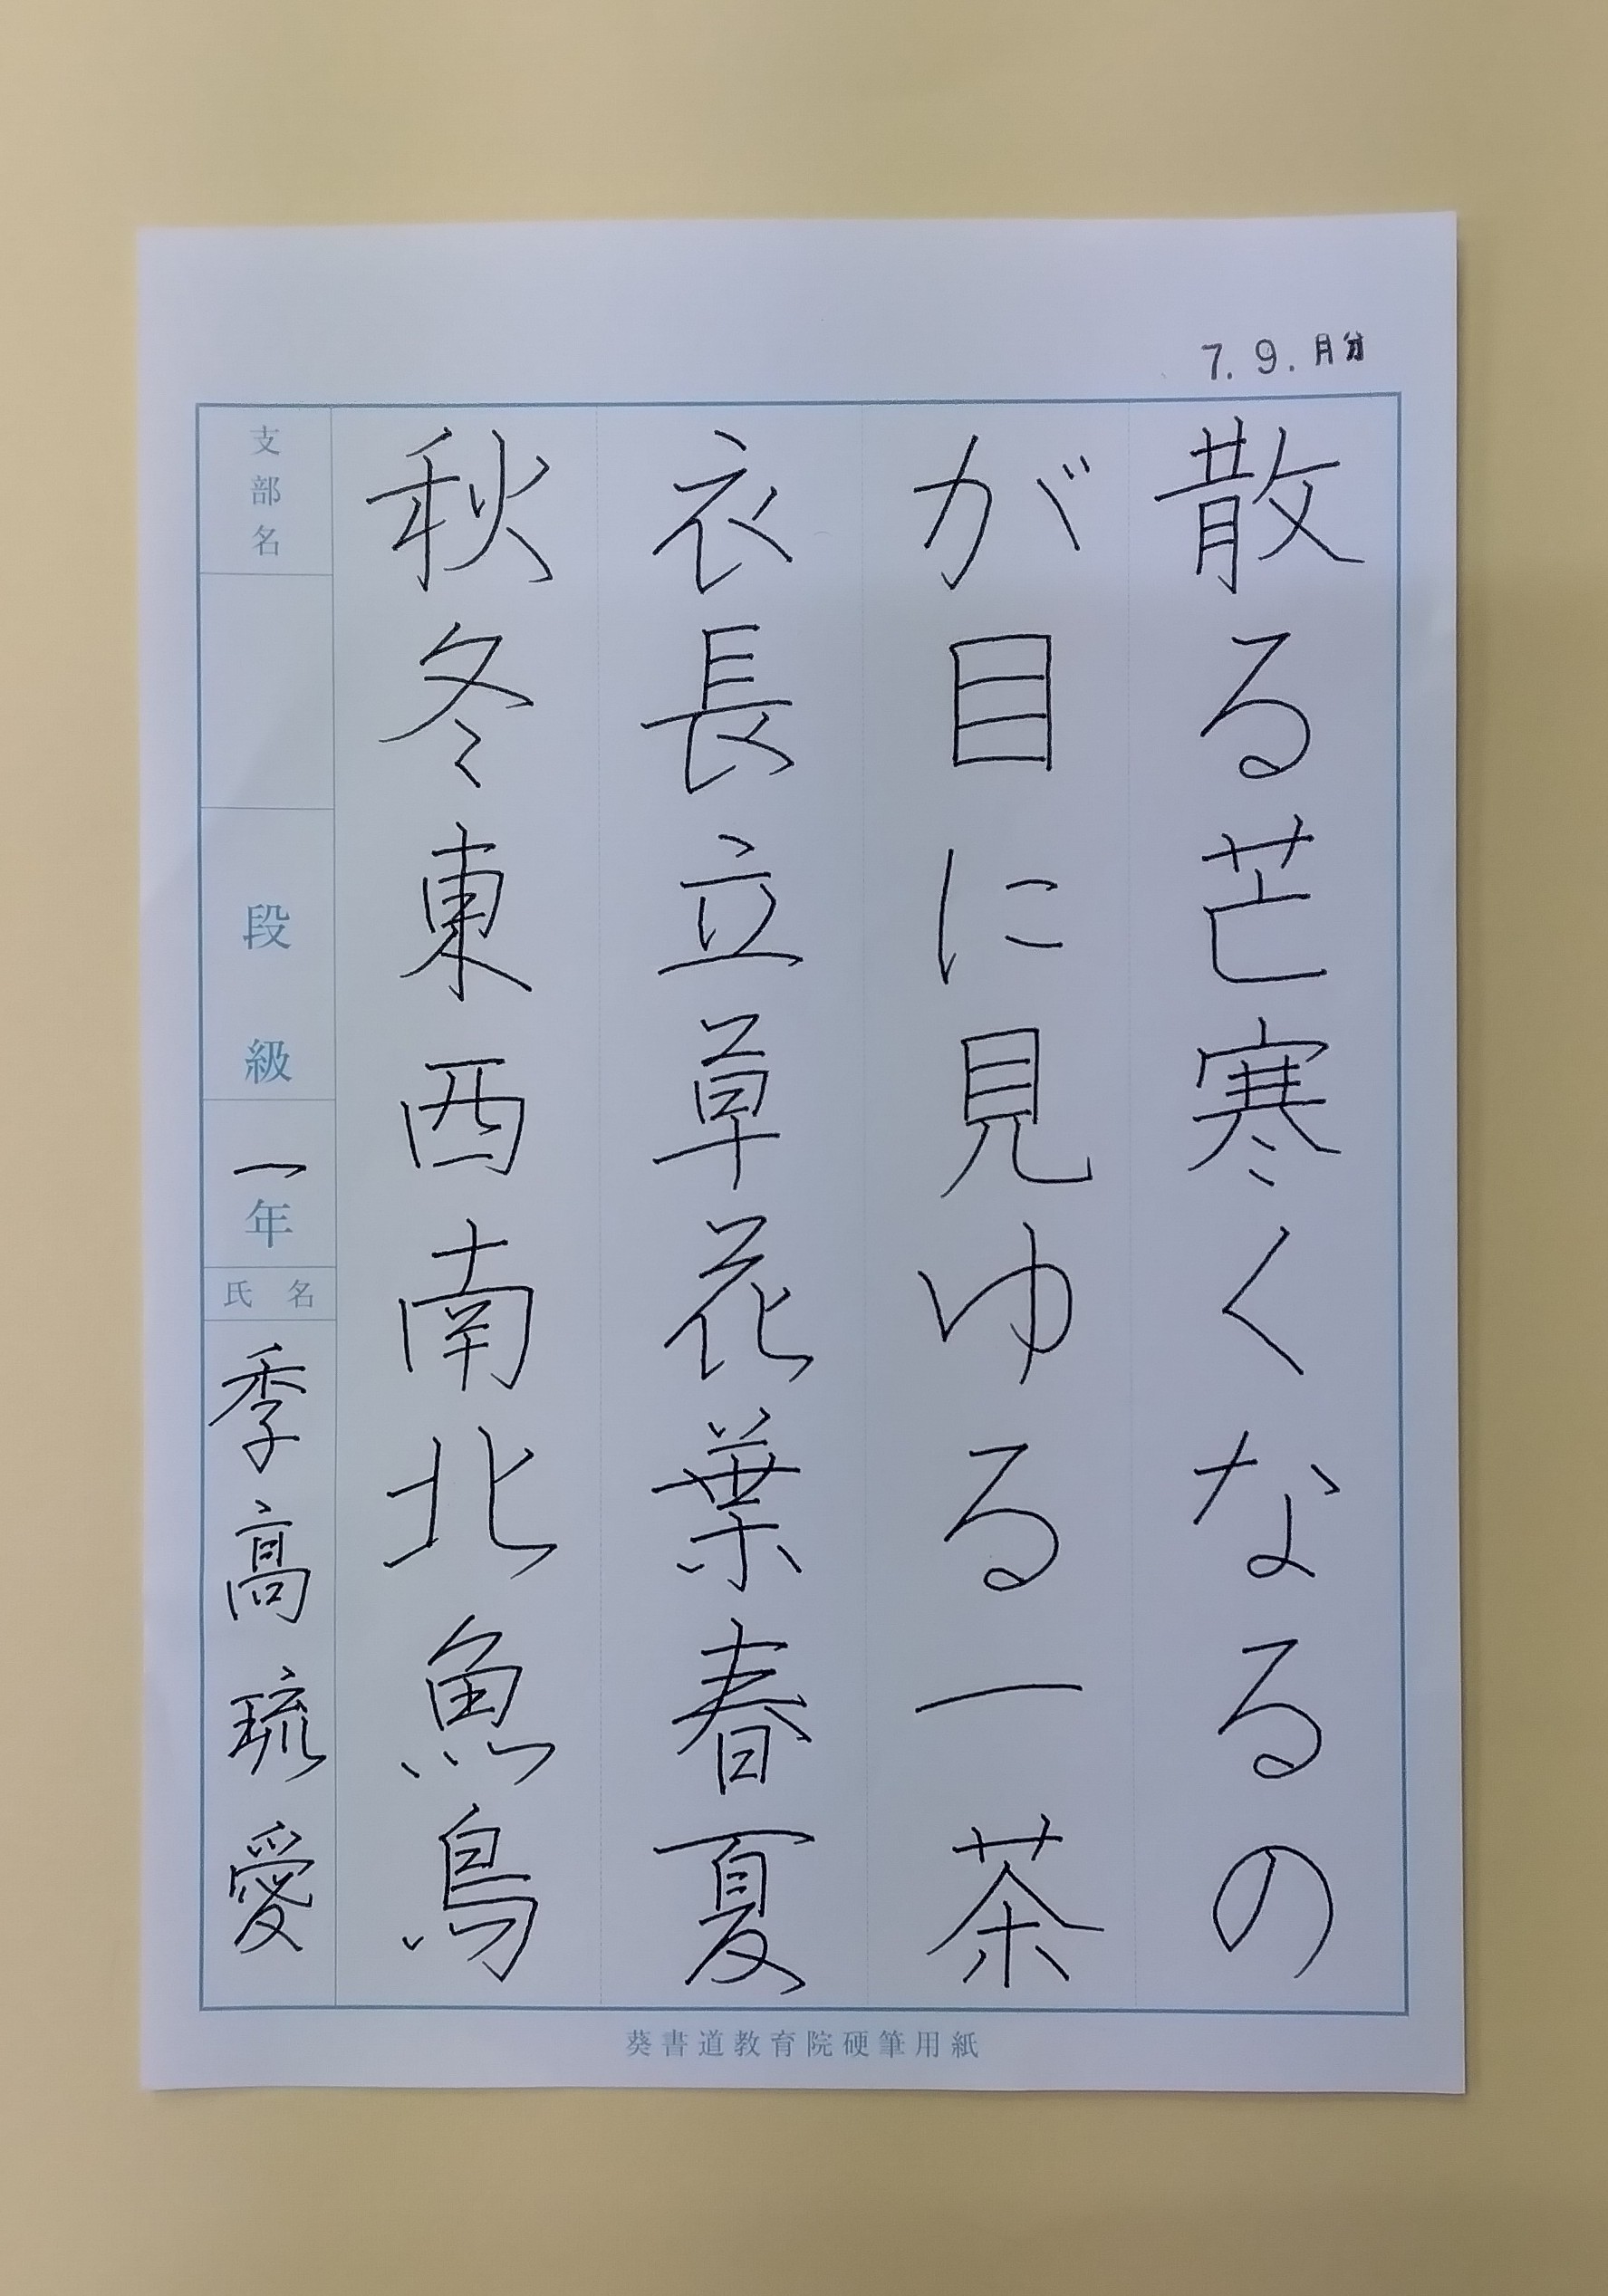 7.9.月分
散る芒寒くなるの
が目に見ゆる一茶
衣長立草花葉春夏
秋冬東西南北魚鳥
支部名
段級
一年
氏名
季高琉愛
葵書道教育院硬筆用紙